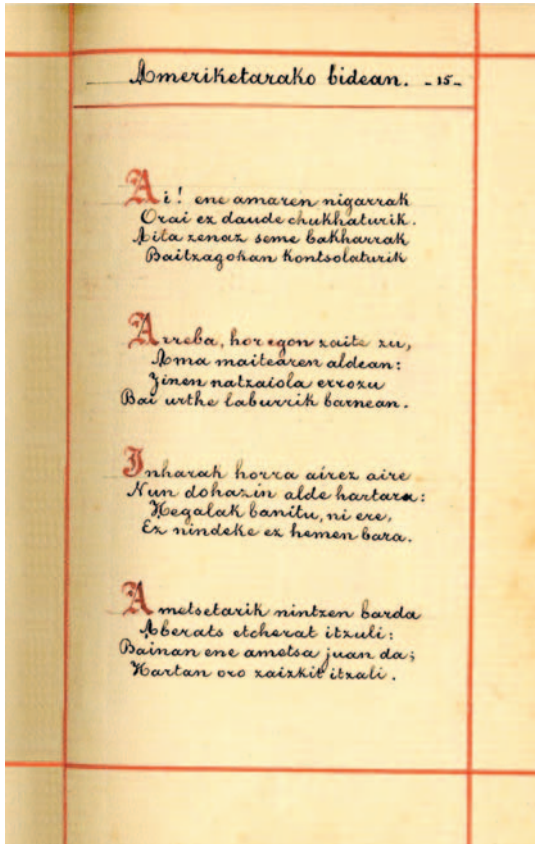 Ameriketarako bidean. - 15 -
Ai! ene amaren nigarrak
Orai ez daude chukhaturik.
Aita zenaz seme bakharrak
Baitzagokan kontsolaturik
Arreba, hor egon zaite zu,
Ama maitearen aldean:
Jinen natzaiola errozu
Bai urthe laburrik barnean.
Inharak horra airez aire
Nun dohazin alde hartara:
Hegalak banitu, ni ere,
Ez nindeke ez hemen bara.
Ametsetarik nintzen barda
Aberats etcherat itzuli:
Bainan ene ametsa juan da;
Hartan oro zaizkit itzali.